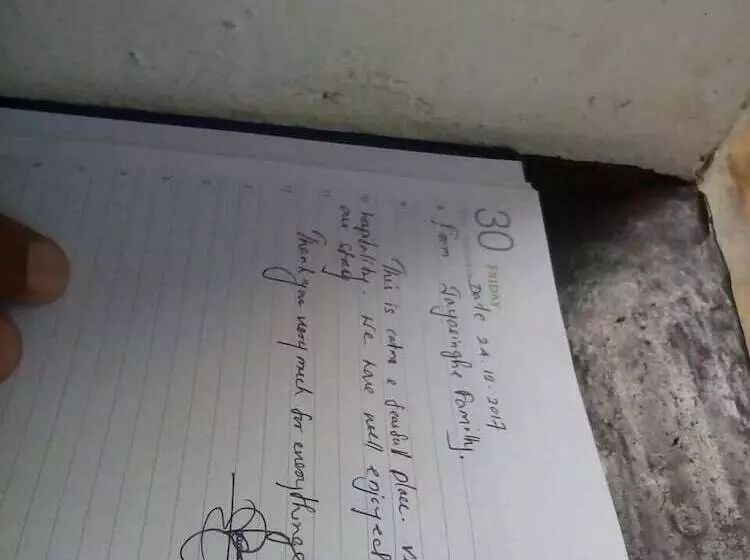 30 FRIDAY
Date 24.10.2017
From Jayasinghe Family.
This is calm & place.
haptality. We have well enjoyed
our stay
Thank you very much for everythinge